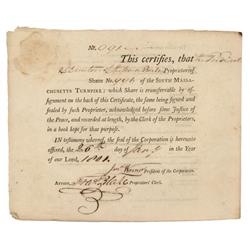 No.
This certifies, that
Proprietor of
Share No. of the South Massa-
chusetts Turnpike; which Share is transferrable by as-
signment on the back of this Certificate, the same being signed and
sealed by such Proprietor, acknowledged before some Justice of
the Peace, and recorded at length, by the Clerk of the Proprietors, in
a book kept for that purpose.
IN testimony whereof, the seal of the Corporation is hereunto
affixed, the 26th day of in the Year of
our Lord, 1801.
President of the Corporation.
Attest, Proprietors' Clerk.